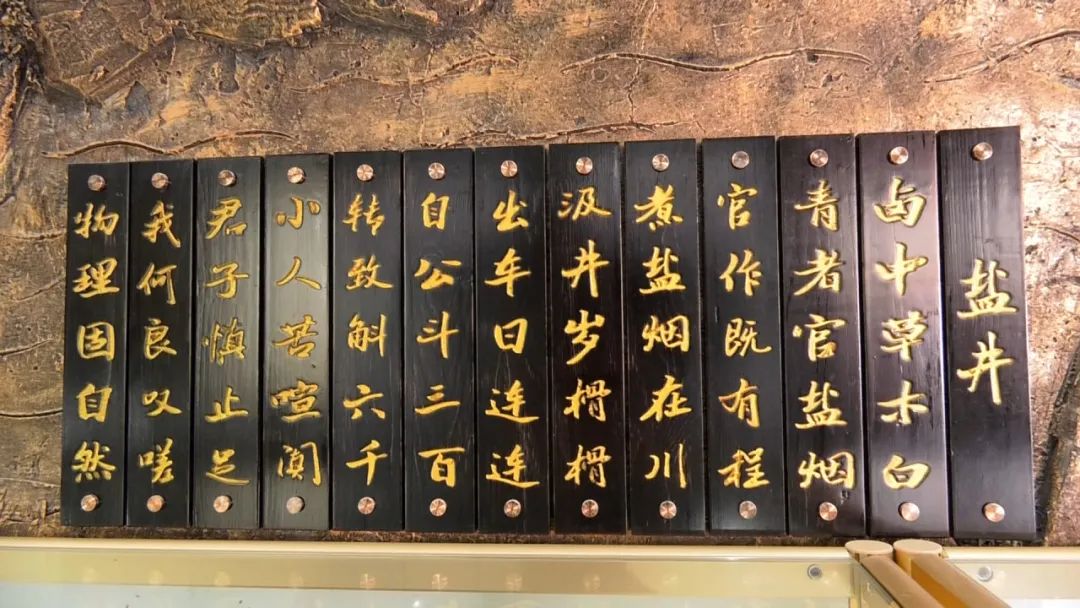 盐井
卤中草木白
青者官盐烟
官作既有程
煮盐烟在川
汲井岁榾榾
出车日连连
自公斗三百
转致斛六千
小人苦喧阗
君子慎止足
我何良叹嗟
物理固自然